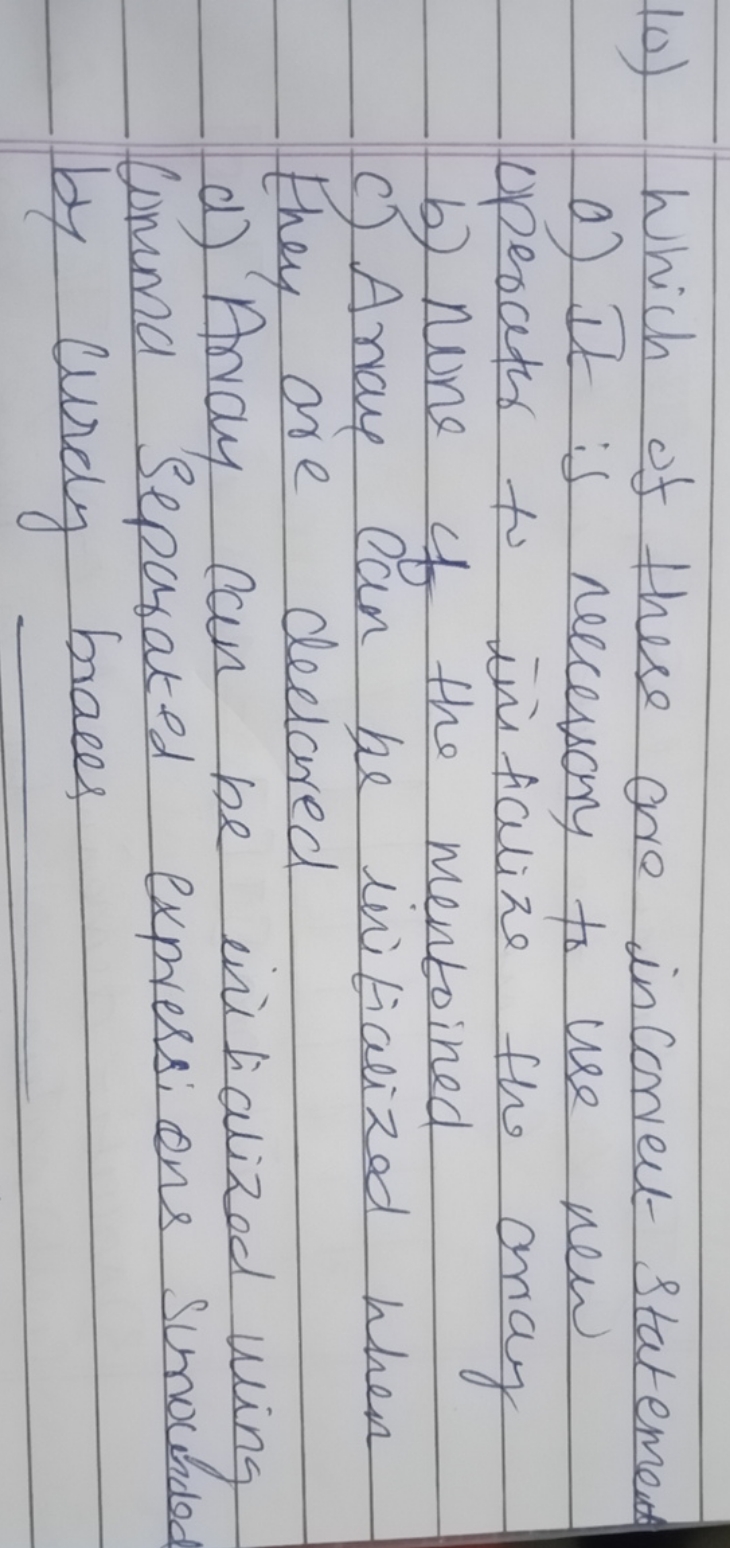 10) Which of these are incorrect statement
a) It is necessary to use new
operator to initialize the array
b) None of the mentoined
c) Array can be initialized when
they are declared
d) Array can be initialized using
Comma separated expressions surrounded
by Curly braces